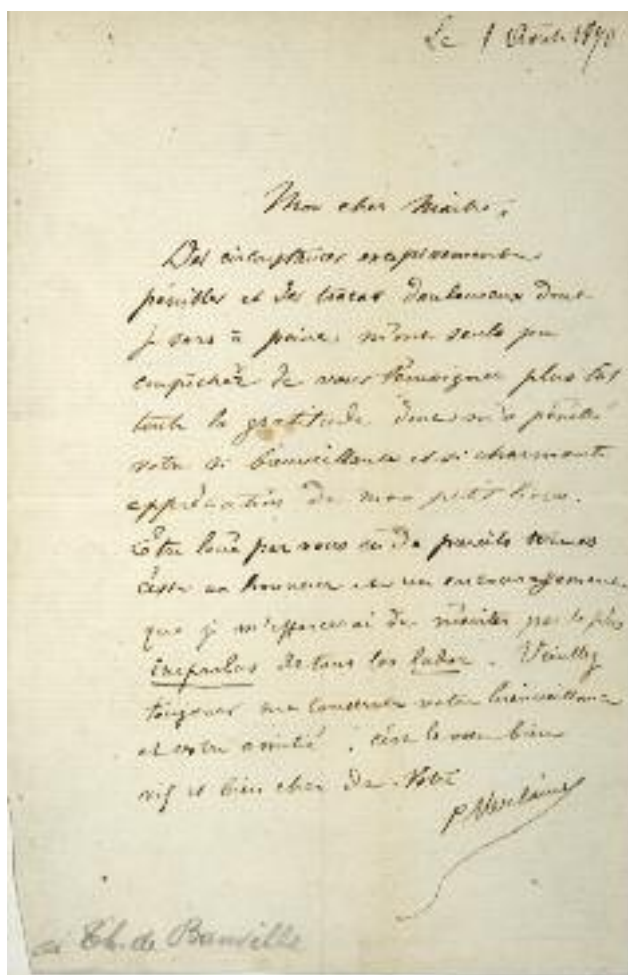 Le 1 Août 1870
Mon cher Maître,
Des circonstances excessivement
pénibles et des tracas douloureux dont
je sors à peine, m'ont seuls pu
empêcher de vous témoigner plus tôt
toute la gratitude dont m'a pénétré
votre si bienveillante et si charmante
appréciation de mon petit livre.
Être loué par vous en de pareils termes
c'est un honneur et un encouragement
que je m'efforcerai de mériter par le plus
de tous les labor. Veuillez
toujours me conserver votre bienveillance
et votre amitié : c'est le vœu bien
vif et bien cher de Votre
P. Verlaine
à Th. de Banville